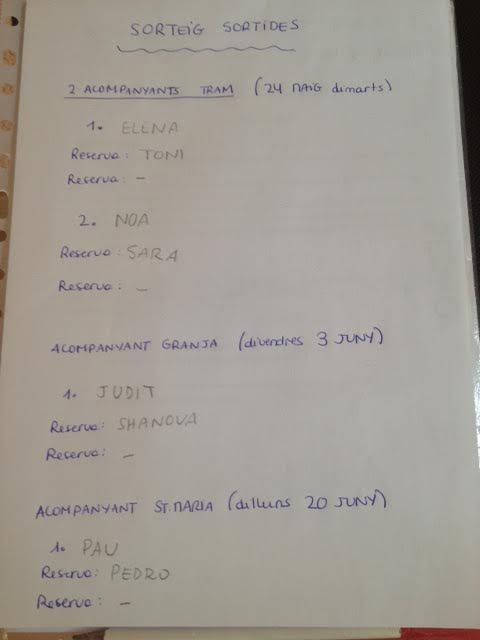 SORTEIG SORTIDES
2 ACOMPANYANTS TRAM (24 MAIG dimarts)
1. ELENA
Reserva: TONI
Reserva: -
2. NOA
Reserva: SARA
Reserva: -
ACOMPANYANT GRANJA (divendres 3 JUNY)
1. JUDIT
Reserva: SHANOVA
Reserva: -
ACOMPANYANT ST. MARIA (dilluns 20 JUNY)
1. PAU
Reserva: PEDRO
Reserva: -